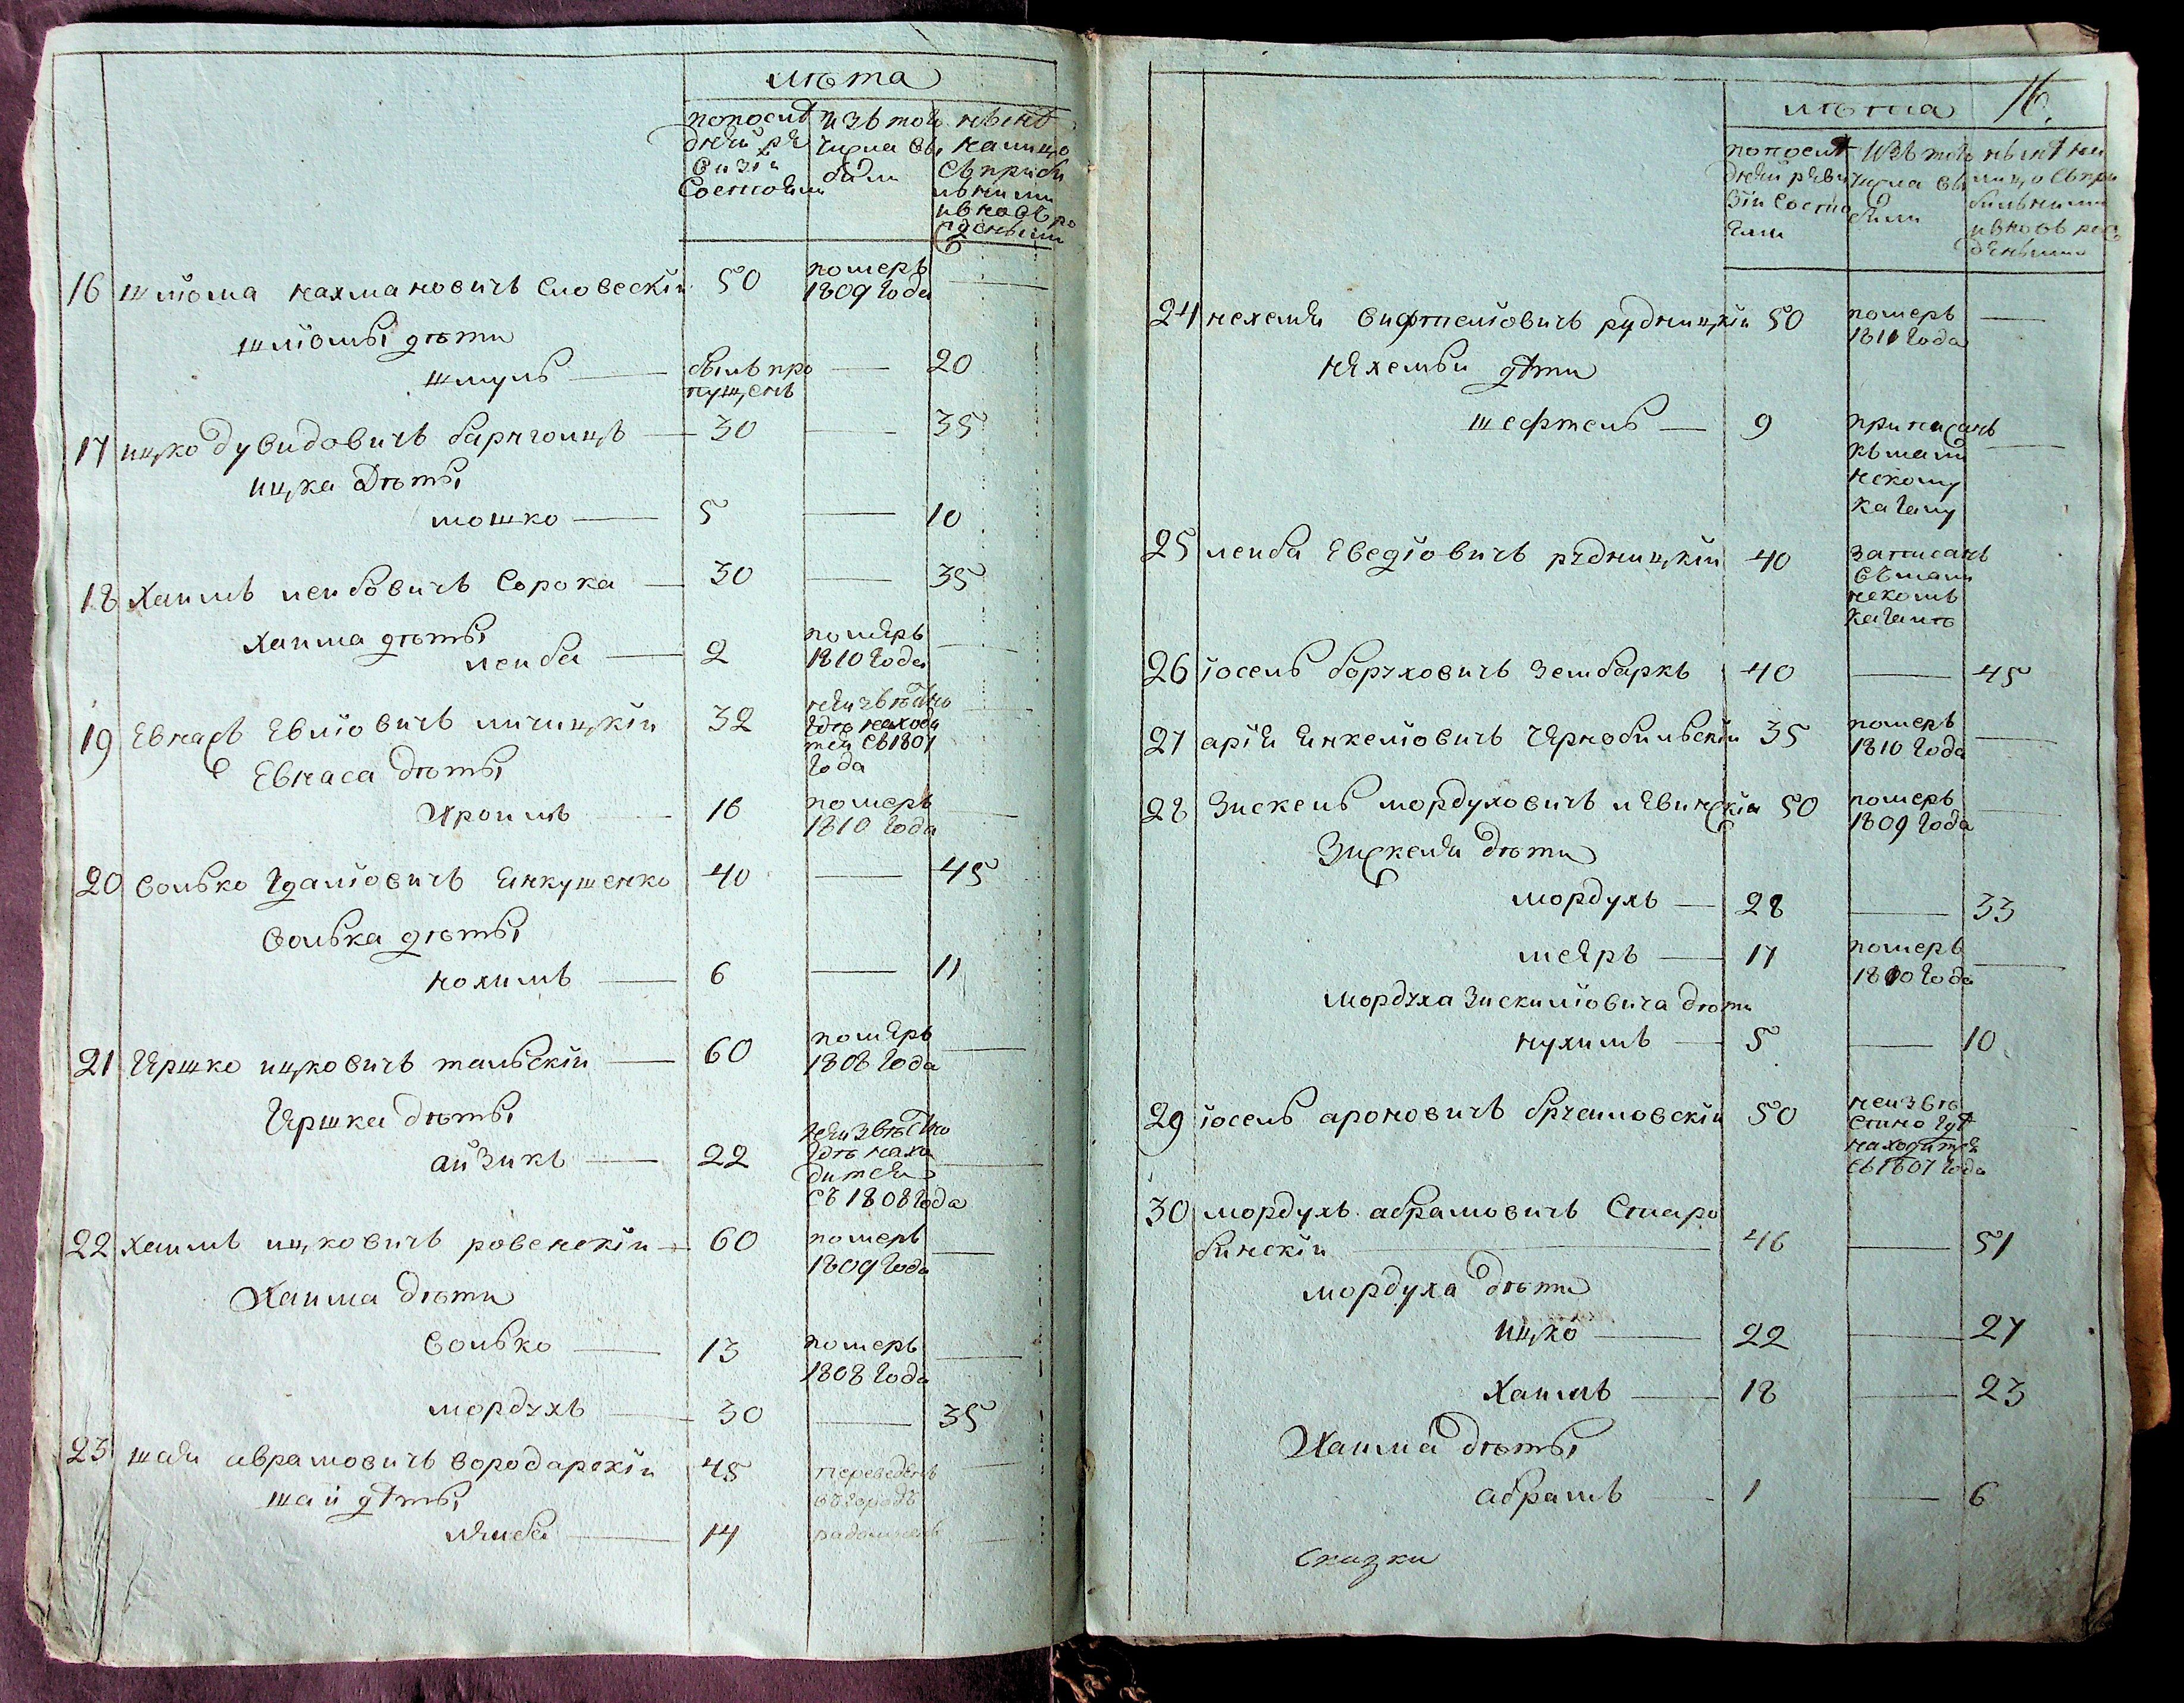 лѣта
по последней ревизіи состояли
изъ того числа выбыли
нынѣ на лицо съ прибылыми и вновь рожденными
16 шлiома нахмановичъ словескій 50 померъ 1809 года —
шлiомы дѣти
шмуль — былъ пропущенъ — 20
17 ицко дувидовичъ — 30 — 35
ицка дѣты
мошко — 5 — 10
18 хаимъ лейбовичъ сорока — 30 — 35
хаима дѣты
лейба — 2 померъ 1810 года —
19 Евнасъ Евлiовичъ 32 неизвѣстно гдѣ находится съ 1807 года —
Евнаса дѣты
Ироимъ — 16 померъ 1810 года —
20 волько гдалiовичъ Енкушенко 40 — 45
волька дѣты
нохимъ — 6 — 11
21 Гершко ицковичъ тальскій — 60 померъ 1808 года —
Гершка дѣты
айзикъ — 22 неизвѣстно гдѣ находится съ 1808 года —
22 хаимъ ицковичъ ровенскій — 60 померъ 1809 года —
Хаима дѣти
волько — 13 померъ 1808 года —
мордухъ — 30 — 35
23 шая аврамовичъ володарскій 45 переведенъ въ городъ —
шаи дѣты
лейба — 14 —
16.
лѣта
по последней ревизіи состояли
изъ того числа выбыли
нынѣ на лицо съ прибылыми и вновь рожденными
24 нехемя рудницкій 50 померъ 1811 года —
нехемьи дѣти
шефтель — 9 приписанъ кагалу —
25 лейба рудницкій 40 записанъ въ кагалѣ
26 iосель боруховичъ зембаркъ 40 — 45
27 арія Енкелiовичъ Чернобильскій 35 померъ 1810 года —
28 Зискель мордуховичъ 50 померъ 1809 года —
Зискеля дѣти
мордухъ — 28 — 33
меръ — 17 померъ 1810 года —
мордуха зискилiовича дѣти
нухимъ — 5 — 10
29 iосель ароновичъ 50 неизвѣстно гдѣ находится съ 1807 года
30 мордухъ абрамовичъ Старо
бинскій — 46 — 51
мордуха дѣти
ицко — 22 — 27
хаимъ — 18 — 23
Хаима дѣты
абрамъ — 1 — 6
сказки